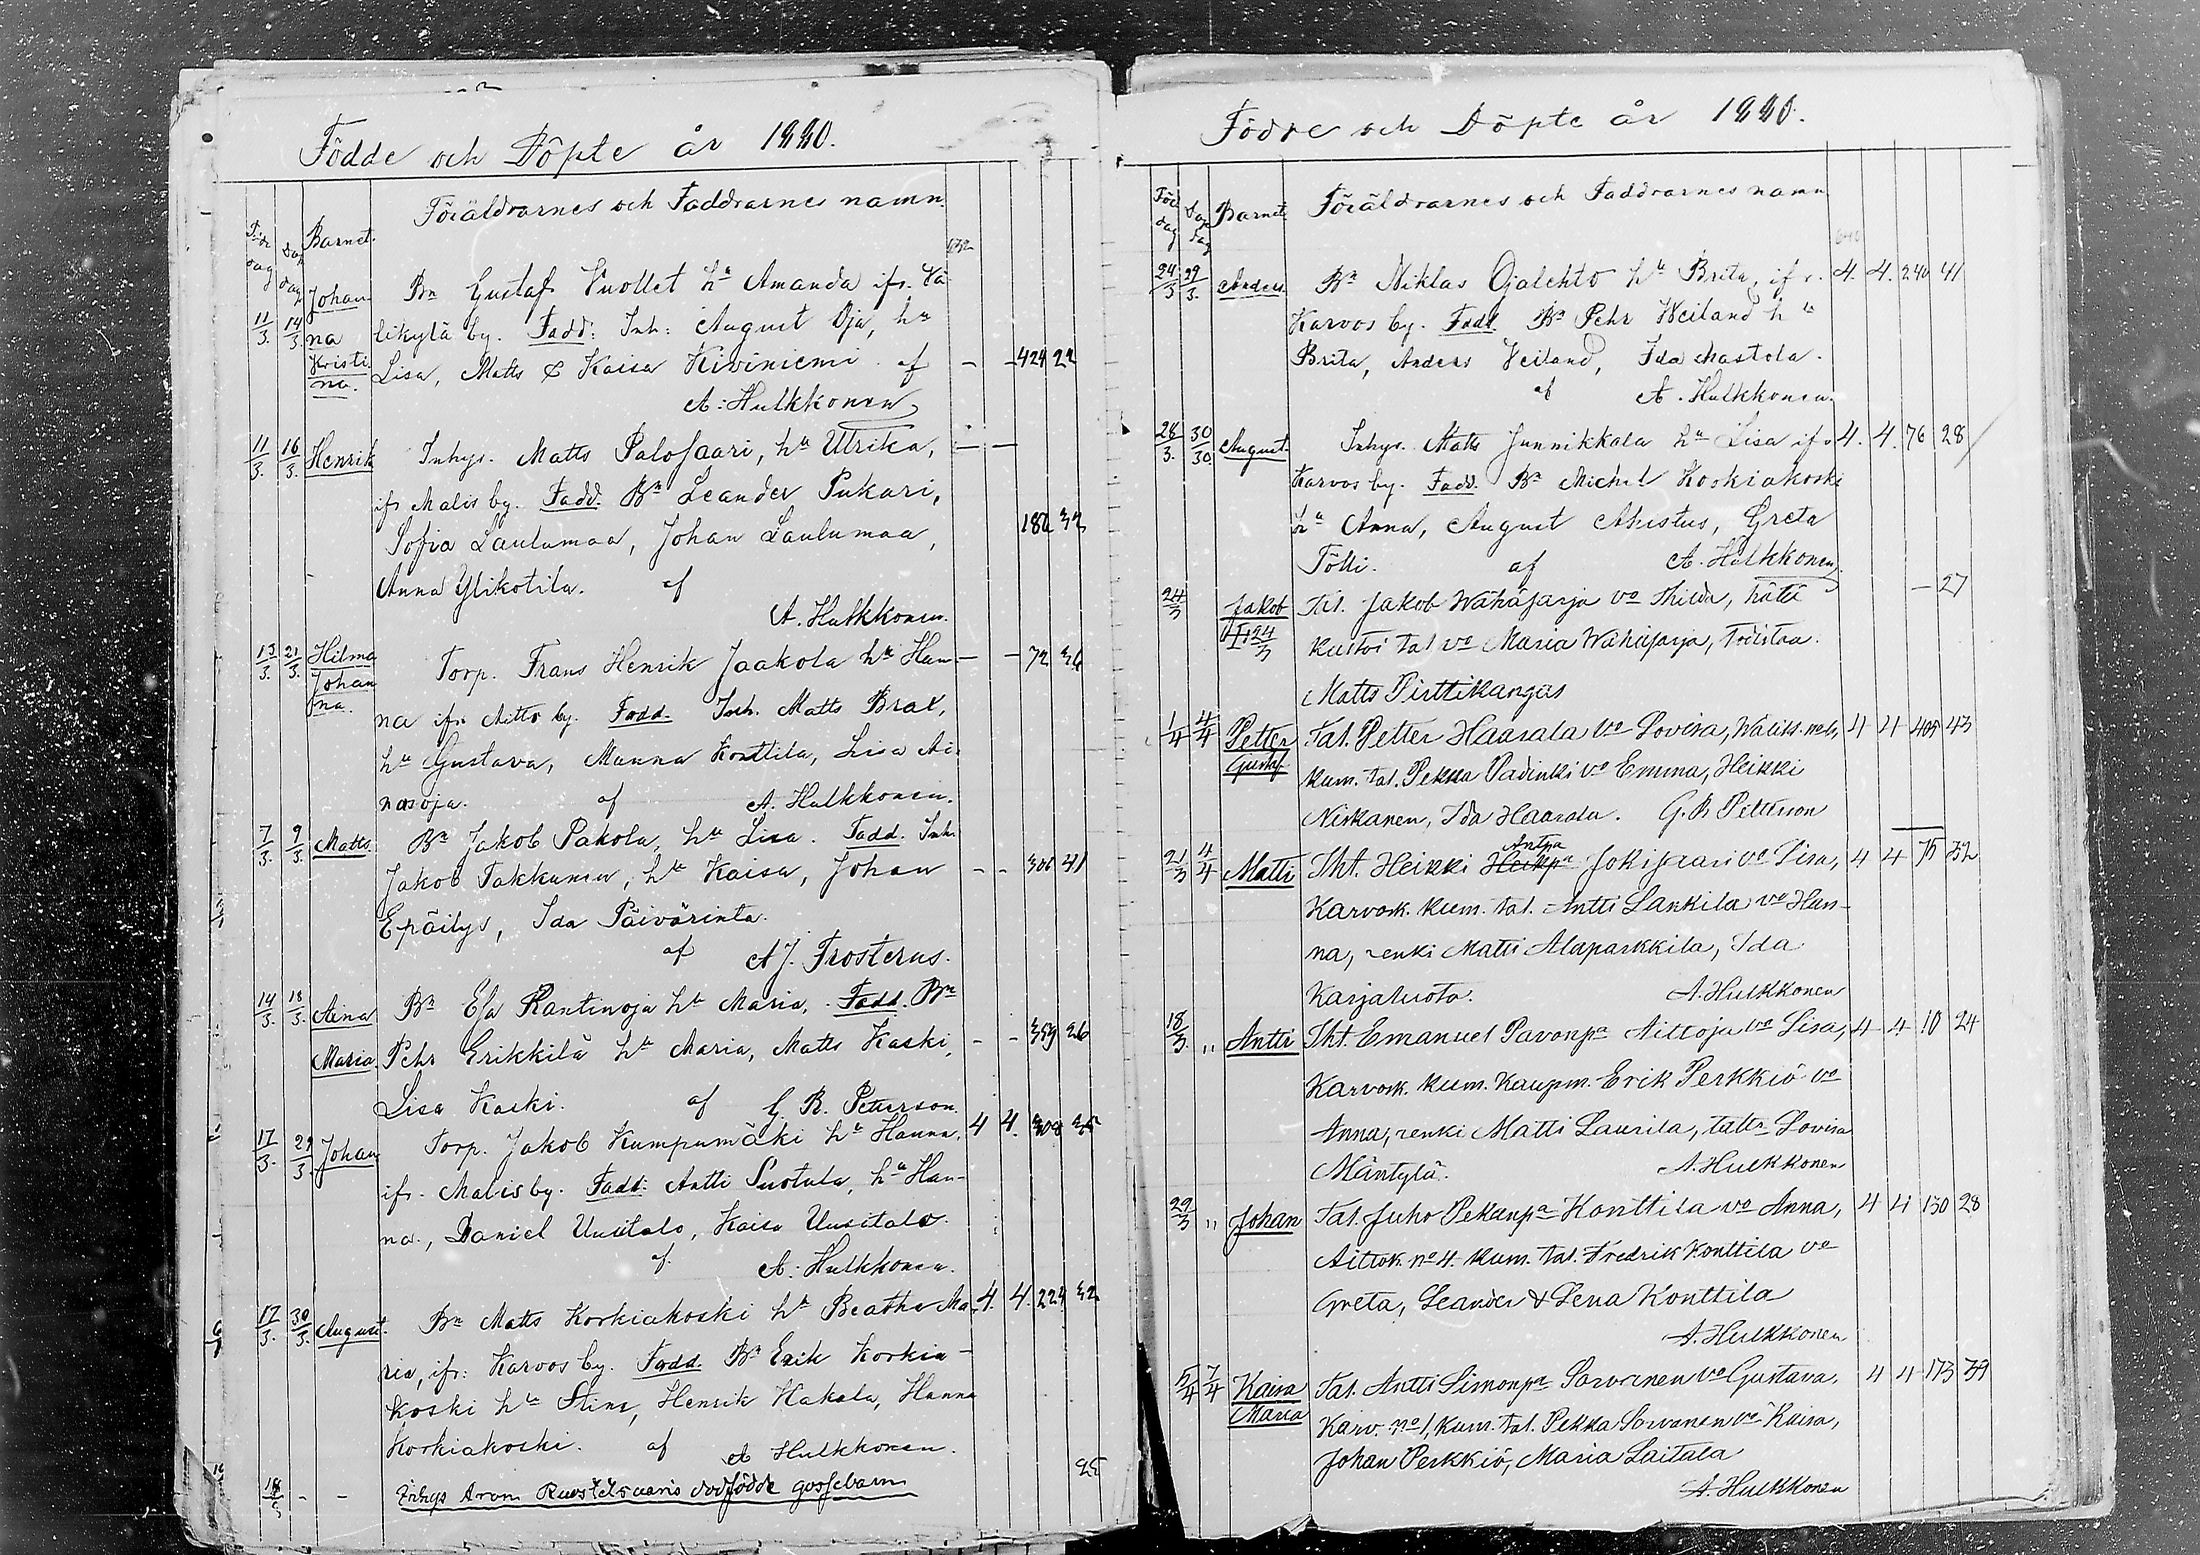 Födde och Döpte år 1880.
Föd. dag Döp. dag Barnet. Föräldrarnes och Faddrarnes namn.
11/3. 14/3 Johanna Kristina. Bn Gustaf Vuollet hu Amanda ifr. Vä
likylä by. Fadd: Inh: August Oja, hu
Lisa, Matts & Kaisa Kiviniemi af — — 424 22
A. Hulkkonen
11/3. 16/3. Henrik Inhys. Matts Palosaari, hu Ulrika, — —
ifr Malis by. Fadd. Bn Leander Pukari,
Sofia Laulumaa, Johan Laulumaa, 182 32
Anna Ylikotila. af
A. Hulkkonen.
13/3. 21/3. Hilma Johanna. Torp. Frans Henrik Jaakola hu Han- — — 72 36
na ifr. Aitto by. Fadd. Inh. Matts Brax,
hu Gustava, Manna Konttila, Lisa Ai-
nasoja. af A. Hulkkonen.
7/3. 9/3. Matts. Bn Jakob Pakola, hu Lisa. Fadd. Inh.
Jakob Takkunen, hu Kaisa, Johan — — 306 41
Epäilys, Ida Päivärinta.
af A J. Frosterus.
14/3. 18/3. Aina Maria Bn Esa Rantinoja hu Maria. Fadd. Bn
Pehr Erikkilä hu Maria, Matts Kaski, — — 359 26
Lisa Kaski. af G. R. Petterson.
17/3. 29/3. Johan Torp. Jakob Kumpumäki hu Hanna, 4 4. 308 35
ifr. Malis by. Fadd: Antti Suotula, hu Han-
na, Daniel Uusitalo, Kaisa Uusitalo.
af. A. Hulkkonen.
17/3. 30/3. August. Bn Matts Korkiakoski hu Beatha Ma- 4. 4. 224 32
ria, ifr: Karvos by. Fadd. Bn Erik Korkia-
koski hu Stina, Henrik Hakala, Hanna
Korkiakoski. af A Hulkkonen.
18/3 — — Inhys Aron dödfödde gossebarn 25
Födde och Döpte år 1880.
Föd. dag Döp. dag Barnet Föräldrarnes och Faddrarnes namn
24/3 29/3. Anders. Bn Niklas Ojalehto hu Brita, ifr. 4. 4. 240 41
Karvos by. Fadd. Bn Pehr Weiland hu
Brita, Anders Veiland, Ida Mastola.
af A. Hulkkonen.
28/3. 30/30. August. Inhys. Matts Junnikkala hu Lisa ifr 4. 4. 76 28
Karvos by. Fadd. Bn Michel Koskiakoski
hu Anna, August Ahistus, Greta
Tölli. af A. Hulkkonen.
24/3 Jakob Tal. Jakob Wähäsarja vo Thilda, hätä — 27
kastoi tal vo Maria Wähäsarja,
Matts Pirttikangas
1/4 4/4 Petter Gustaf Tal. Petter Haarala vo Lovisa, 4 4 405 43
kum. tal. Pekka Padinki vo Emma, Heikki
Niskanen, Ida Haarala. G. R Petterson
21/3 4/4 Matti Tht. Heikki Antpa Jokisaari vo Lisa, 4 4 75 32
Karvosk. kum. tal. Antti Lankila vo Han-
na, renki Matti Alaparkkila, Ida
Karjaluoto. A. Hulkkonen
18/3 " Antti Tht. Emanuel Pavonpa Aittoja vo Lisa, 4 4 10 24
Karvosk. kum. Kaupm. Erik Perkkiö vo
Anna, renki Matti Laurila, Lovisa
Mäntylä. A. Hulkkonen
29/3 " Johan Tal. Juho Pekanpa Konttila vo Anna, 4 4 130 28
Aittok. no 4. kum. tal. Fredrik Konttila vo
Greta, Leander & Lena Konttila
A. Hulkkonen
5/4 7/4 Kaisa Maria Tal. Antti Simonpa Sorvonen vo Gustava, 4 4 173 39
Karv. no 1, kum. tal. Pekka Sorvonen vo Kaisa,
Johan Perkkiö, Maria Laitala
A. Hulkkonen